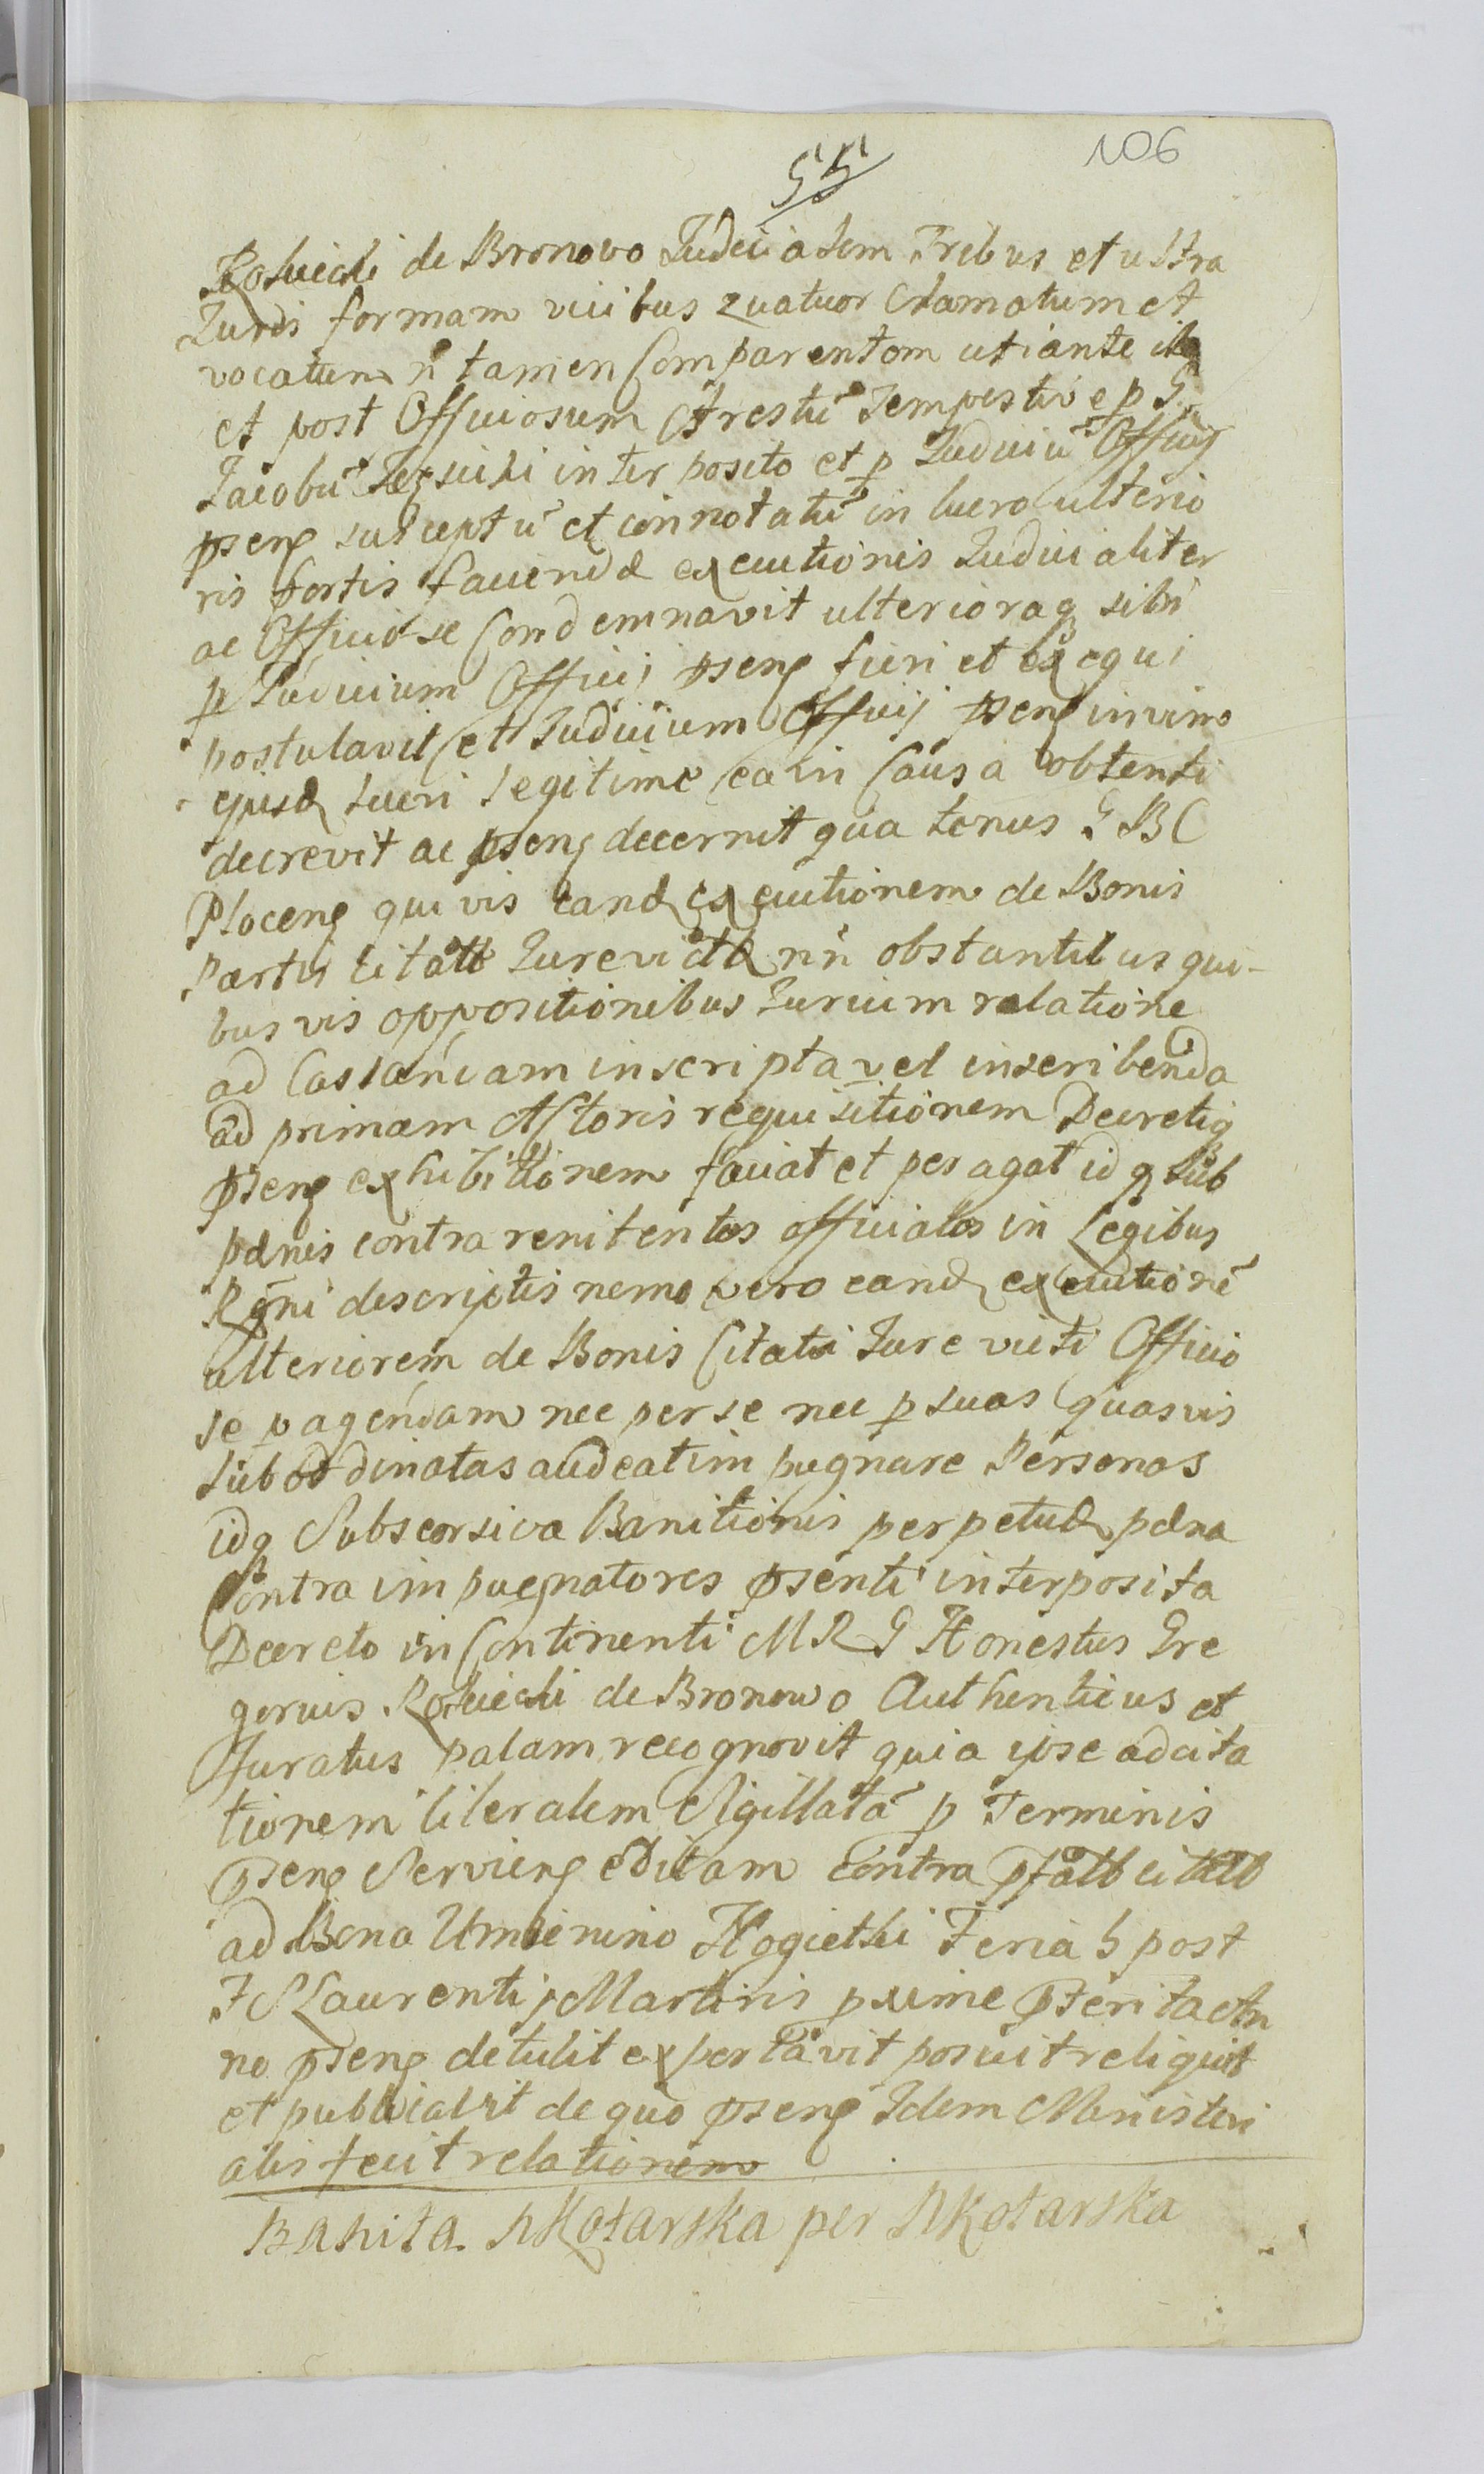 55
106
de Bronovo Judicialem Tribus et ultra
Juris formam vicibus quatuor Clamatum et
vocatum n̄ tamen Comparentem uti ante ita
et post Officiosum Arestū Tempestive p G
Jacobū inter posito et p Judiciū Officij
pseng susceptū et connotatū in lucro ulterio
ris fortis faciendæ executionis Judicialiter
ac Officiose Condemnavit ulterioraq sibi
p Judicium Officij pseng fieri et exequi
postulavit et Judicium Officij pseng in vim
ejusd lucri legitime ea in Causa obtenti
decrevit ac pseng decernit quatenus G B C
Ploceng quivis eand executionem de Bonis
Partis citatæ Jurevictæ nn obstantibus qui-
bus vis oppositionibus Jurium relatione
ad Castanciam inscripta vel inscribenda
ad primam Actoris requisitionem Decretiq
pseng exhibitionem faciat et peragat idq sub
pænis contra renitentes officiales in Legibus
Rgni descriptis nemo vero eand executionē
ulteriorem de Bonis Citati Jure victi Officio
se pagendam nec per se nec p suas quasvis
subordinatas audeat impugnare Personas
idq Sub Banitionis perpetuæ pæna
Contra impugnatores psenti interposita
Decreto in Continenti M R G Honestus Gre
gorius de Bronowo Authenticus et
Juratus palam recognovit quia ipse ad cita
tionem literalem Sigillatā p Terminis
pseng Servieng editam contra citatæ
ad Bona Umienino Feria 5 post
F S Laurentij Martiris pxime pterita An
no pseng detulit exportavit posuit reliquit
et publicavit de quo pseng Idem Ministeri
alis fecit relationem
Banita NKotarska per NKotarska